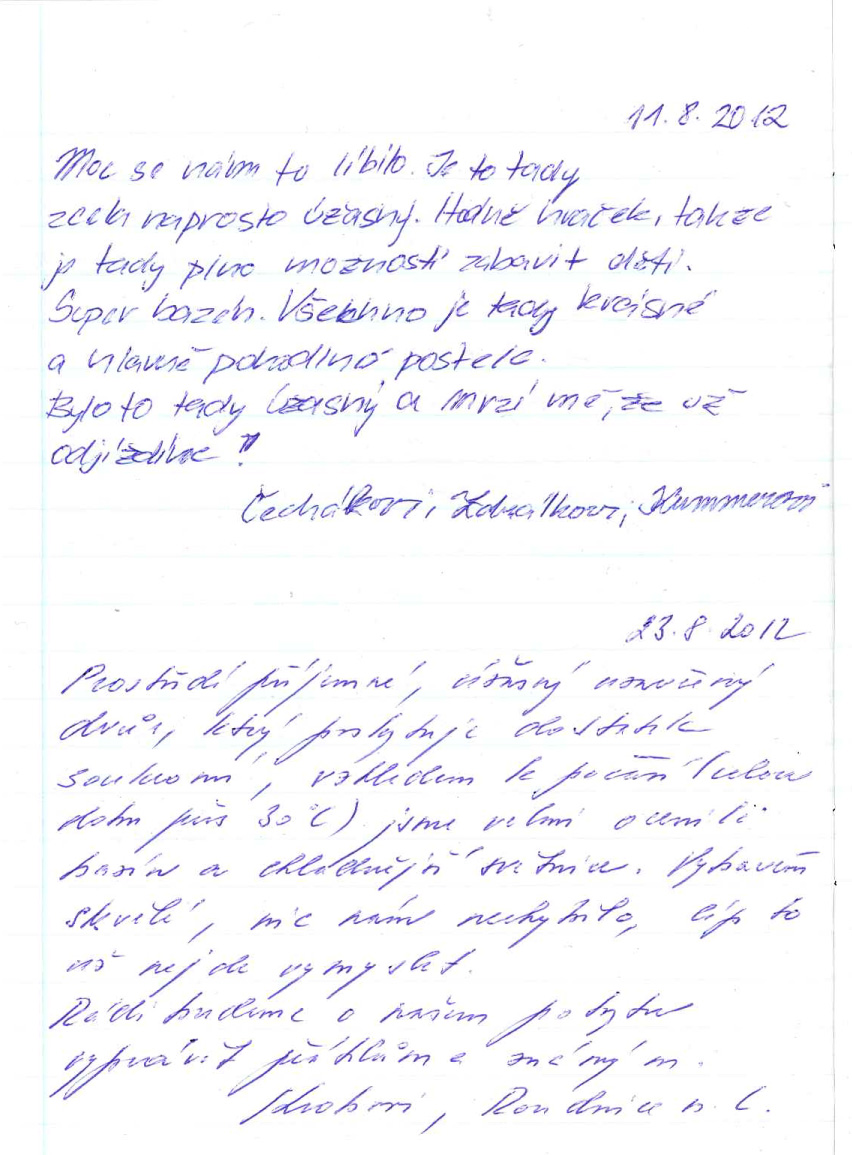 11.8.2012
Moc se nám to líbilo. Je to tady
zcela naprosto úžasný. Hodně hraček, takže
je tady plno možností zabavit děti.
Super bazén. Všechno je tady krásné
a hlavně pohodlné postele.
Bylo to tady úžasný a mrzí mě, že už
odjíždíme!
Čechákovi, Kummerovi
23.8.2012
Prostředí příjemné, úžasný uzavřený
dvůr, který poskytuje dostatek
soukromí, vzhledem k počasí (celou
dobu přes 30°C) jsme velmi ocenili
bazén a chladnější světnice. Vybavení
skvělé, nic nám nechybělo, líp to
už nejde vymyslet.
Rádi budeme o našem pobytu
vyprávět přátelům a známým.
Roudnice n. L.